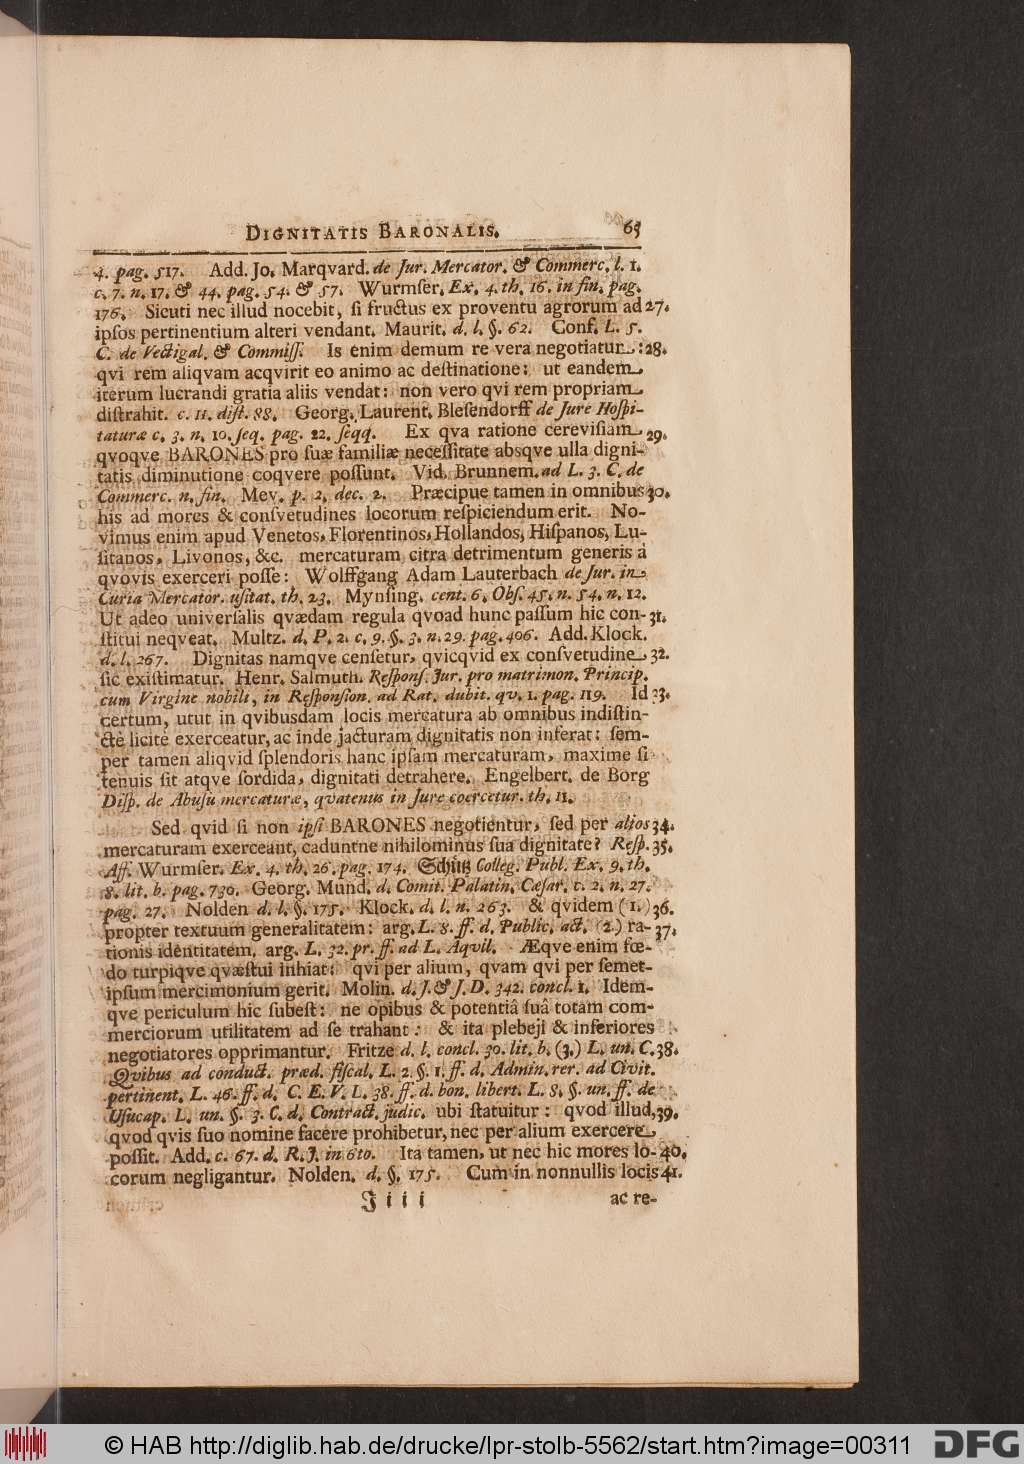 DIGNITATIS BARONALIS. 65
4. pag. 517. Add. Jo. Marqvard. de Jur. Mercator. & Commerc. l. 1.
c. 7. n. 17. & 44. pag. 54. & 57. Wurmſer. Ex. 4. th. 16. in fin. pag.
176. Sicuti nec illud nocebit, ſi fructus ex proventu agrorum ad 27.
ipſos pertinentium alteri vendant. Maurit. d. l. §. 62. Conf. L. 5.
C. de Vectigal. & Commiſſ. Is enim demum re vera negotiatur: 28.
qvi rem aliqvam acqvirit eo animo ac deſtinatione: ut eandem
iterum lucrandi gratia aliis vendat: non vero qvi rem propriam
diſtrahit. c. 11. diſt. 88. Georg. Laurent. Bleſendorff de Jure Hoſpi-
taturæ c. 3. n. 10. ſeq. pag. 22. ſeqq. Ex qva ratione cereviſiam 29.
qvoqve BARONES pro ſuæ familiæ neceſſitate absqve ulla digni-
tatis diminutione coqvere poſſunt. Vid. Brunnem. ad L. 3. C. de
Commerc. n. fin. Mev. p. 2. dec. 2. Præcipue tamen in omnibus 30.
his ad mores & conſvetudines locorum reſpiciendum erit. No-
vimus enim apud Venetos, Florentinos, Hollandos, Hiſpanos, Lu-
ſitanos, Livonos, &c. mercaturam citra detrimentum generis à
qvovis exerceri poſſe: Wolffgang Adam Lauterbach de Jur. in
Curia Mercator. uſitat. th. 23. Mynſing. cent. 6. Obſ. 45. n. 54. n. 12.
Ut adeo univerſalis qvædam regula qvoad hunc paſſum hic con- 31.
ſtitui neqveat. Multz. d. P. 2. c. 9. §. 3. n. 29. pag. 406. Add. Klock.
d. l. 267. Dignitas namqve cenſetur, qvicqvid ex conſvetudine 32.
ſic exiſtimatur. Henr. Salmuth. Reſponſ. Jur. pro matrimon. Princip.
cum Virgine nobili, in Reſponſion. ad Rat. dubit. qv. 1. pag. 119. Id 33.
certum, utut in qvibusdam locis mercatura ab omnibus indiſtin-
ctè licitè exerceatur, ac inde jacturam dignitatis non inferat: ſem-
per tamen aliqvid ſplendoris hanc ipſam mercaturam, maxime ſi
tenuis ſit atqve ſordida, dignitati detrahere. Engelbert. de Borg
Diſp. de Abuſu mercaturæ, qvatenus in Jure coercetur. th. 11.
Sed qvid ſi non ipſi BARONES negotientur, ſed per alios 34.
mercaturam exerceant, caduntne nihilominus ſua dignitate? Reſp. 35.
Aff. Wurmſer. Ex. 4. th. 26. pag. 174. Schütz Colleg. Publ. Ex. 9. th.
8. lit. b. pag. 730. Georg. Mund. d. Comit. Palatin. Cæſar. c. 2. n. 27.
pag. 27. Nolden d. l. §. 175. Klock. d. l. n. 263. & qvidem (1.) 36.
propter textuum generalitatem: arg. L. 8. ff. d. Public. act. (2.) ra- 37.
tionis identitatem. arg. L. 32. pr. ff. ad L. Aqvil. Æqve enim fœ-
do turpiqve qvæſtui inhiat: qvi per alium, qvam qvi per ſemet-
ipſum mercimonium gerit. Molin. d. J. & J. D. 342. concl. 1. Idem-
qve periculum hic ſubeſt: ne opibus & potentiâ ſuâ totam com-
merciorum utilitatem ad ſe trahant: & ita plebeji & inferiores
negotiatores opprimantur. Fritze d. l. concl. 30. lit. b. (3.) L. un. C. 38.
Qvibus ad conduct. præd. fiſcal. L. 2. §. 1. ff. d. Admin. rer. ad Civit.
pertinent. L. 46. ff. d. C. E. V. L. 38. ff. d. bon. libert. L. 8. §. un. ff. de
Uſucap. L. un. §. 3. C. d. Contract. judic. ubi ſtatuitur: qvod illud, 39.
qvod qvis ſuo nomine facere prohibetur, nec per alium exercere
poſſit. Add. c. 67. d. R. J. in 6to. Ita tamen, ut nec hic mores lo- 40.
corum negligantur. Nolden. d. §. 175. Cum in nonnullis locis 41.
J i i i ac re-
© HAB http://diglib.hab.de/drucke/lpr-stolb-5562/start.htm?image=00311 DFG